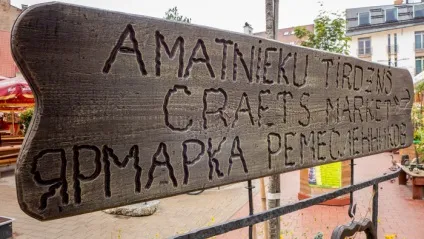 AMATNIEKU TIRDZNS
CRAFTS MARKET →
ЯРМАРКА РЕМЕСЛЕННИКОВ